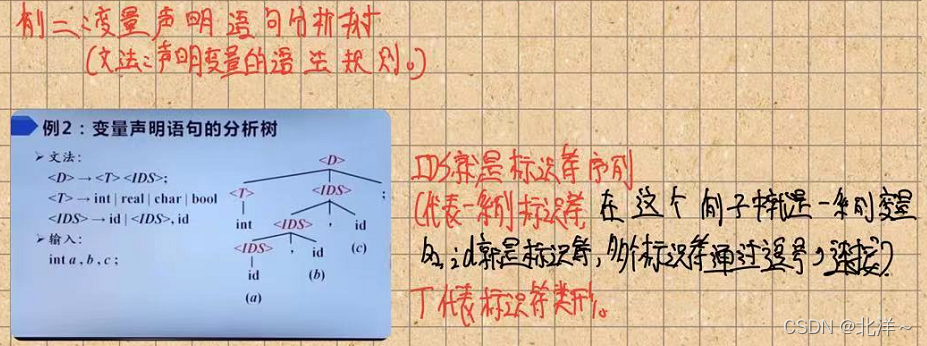 例二:变量声明语句分析树
(文法:声明变量的语法规则。)
例2:变量声明语句的分析树
文法:
<D> → <T> <IDS>;
<T> → int | real | char | bool
<IDS> → id | <IDS>, id
输入:
int a , b , c ;
<D>
<T> <IDS> ;
int <IDS> , id
(c)
<IDS> , id
id (b)
(a)
IDS就是标识符序列
(代表一系列标识符,在这个例子中就是一系列变量
id就是标识符,多个标识符通过逗号,连接)
T代表标识符类型。
CSDN @北洋~